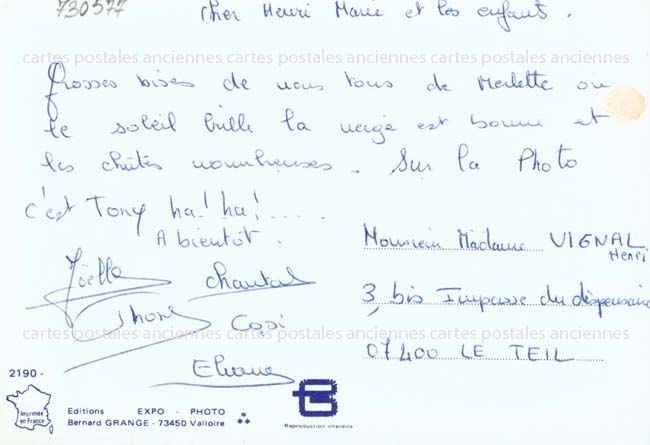 730577
Cher Henri Marie et les enfants.
cartes postales anciennes cartes postales anciennes cartes postales anciennes
Grosses bises de nous tous de Merlette ou
le soleil brille la neige est bonne et
les chutes nombreuses. Sur la Photo
c'est Tony ha! ha!.....
A bientôt.
Joëlle Chantal
Cosi
Eliane
Monsieur Madame VIGNAL
Henri
3, bis Impasse du dispensaire
cartes postales anciennes cartes postales anciennes cartes postales anciennes
07400 LE TEIL
2190 -
Imprimée
en France
Editions EXPO - PHOTO
Bernard GRANGE - 73450 Valloire
Reproduction interdite